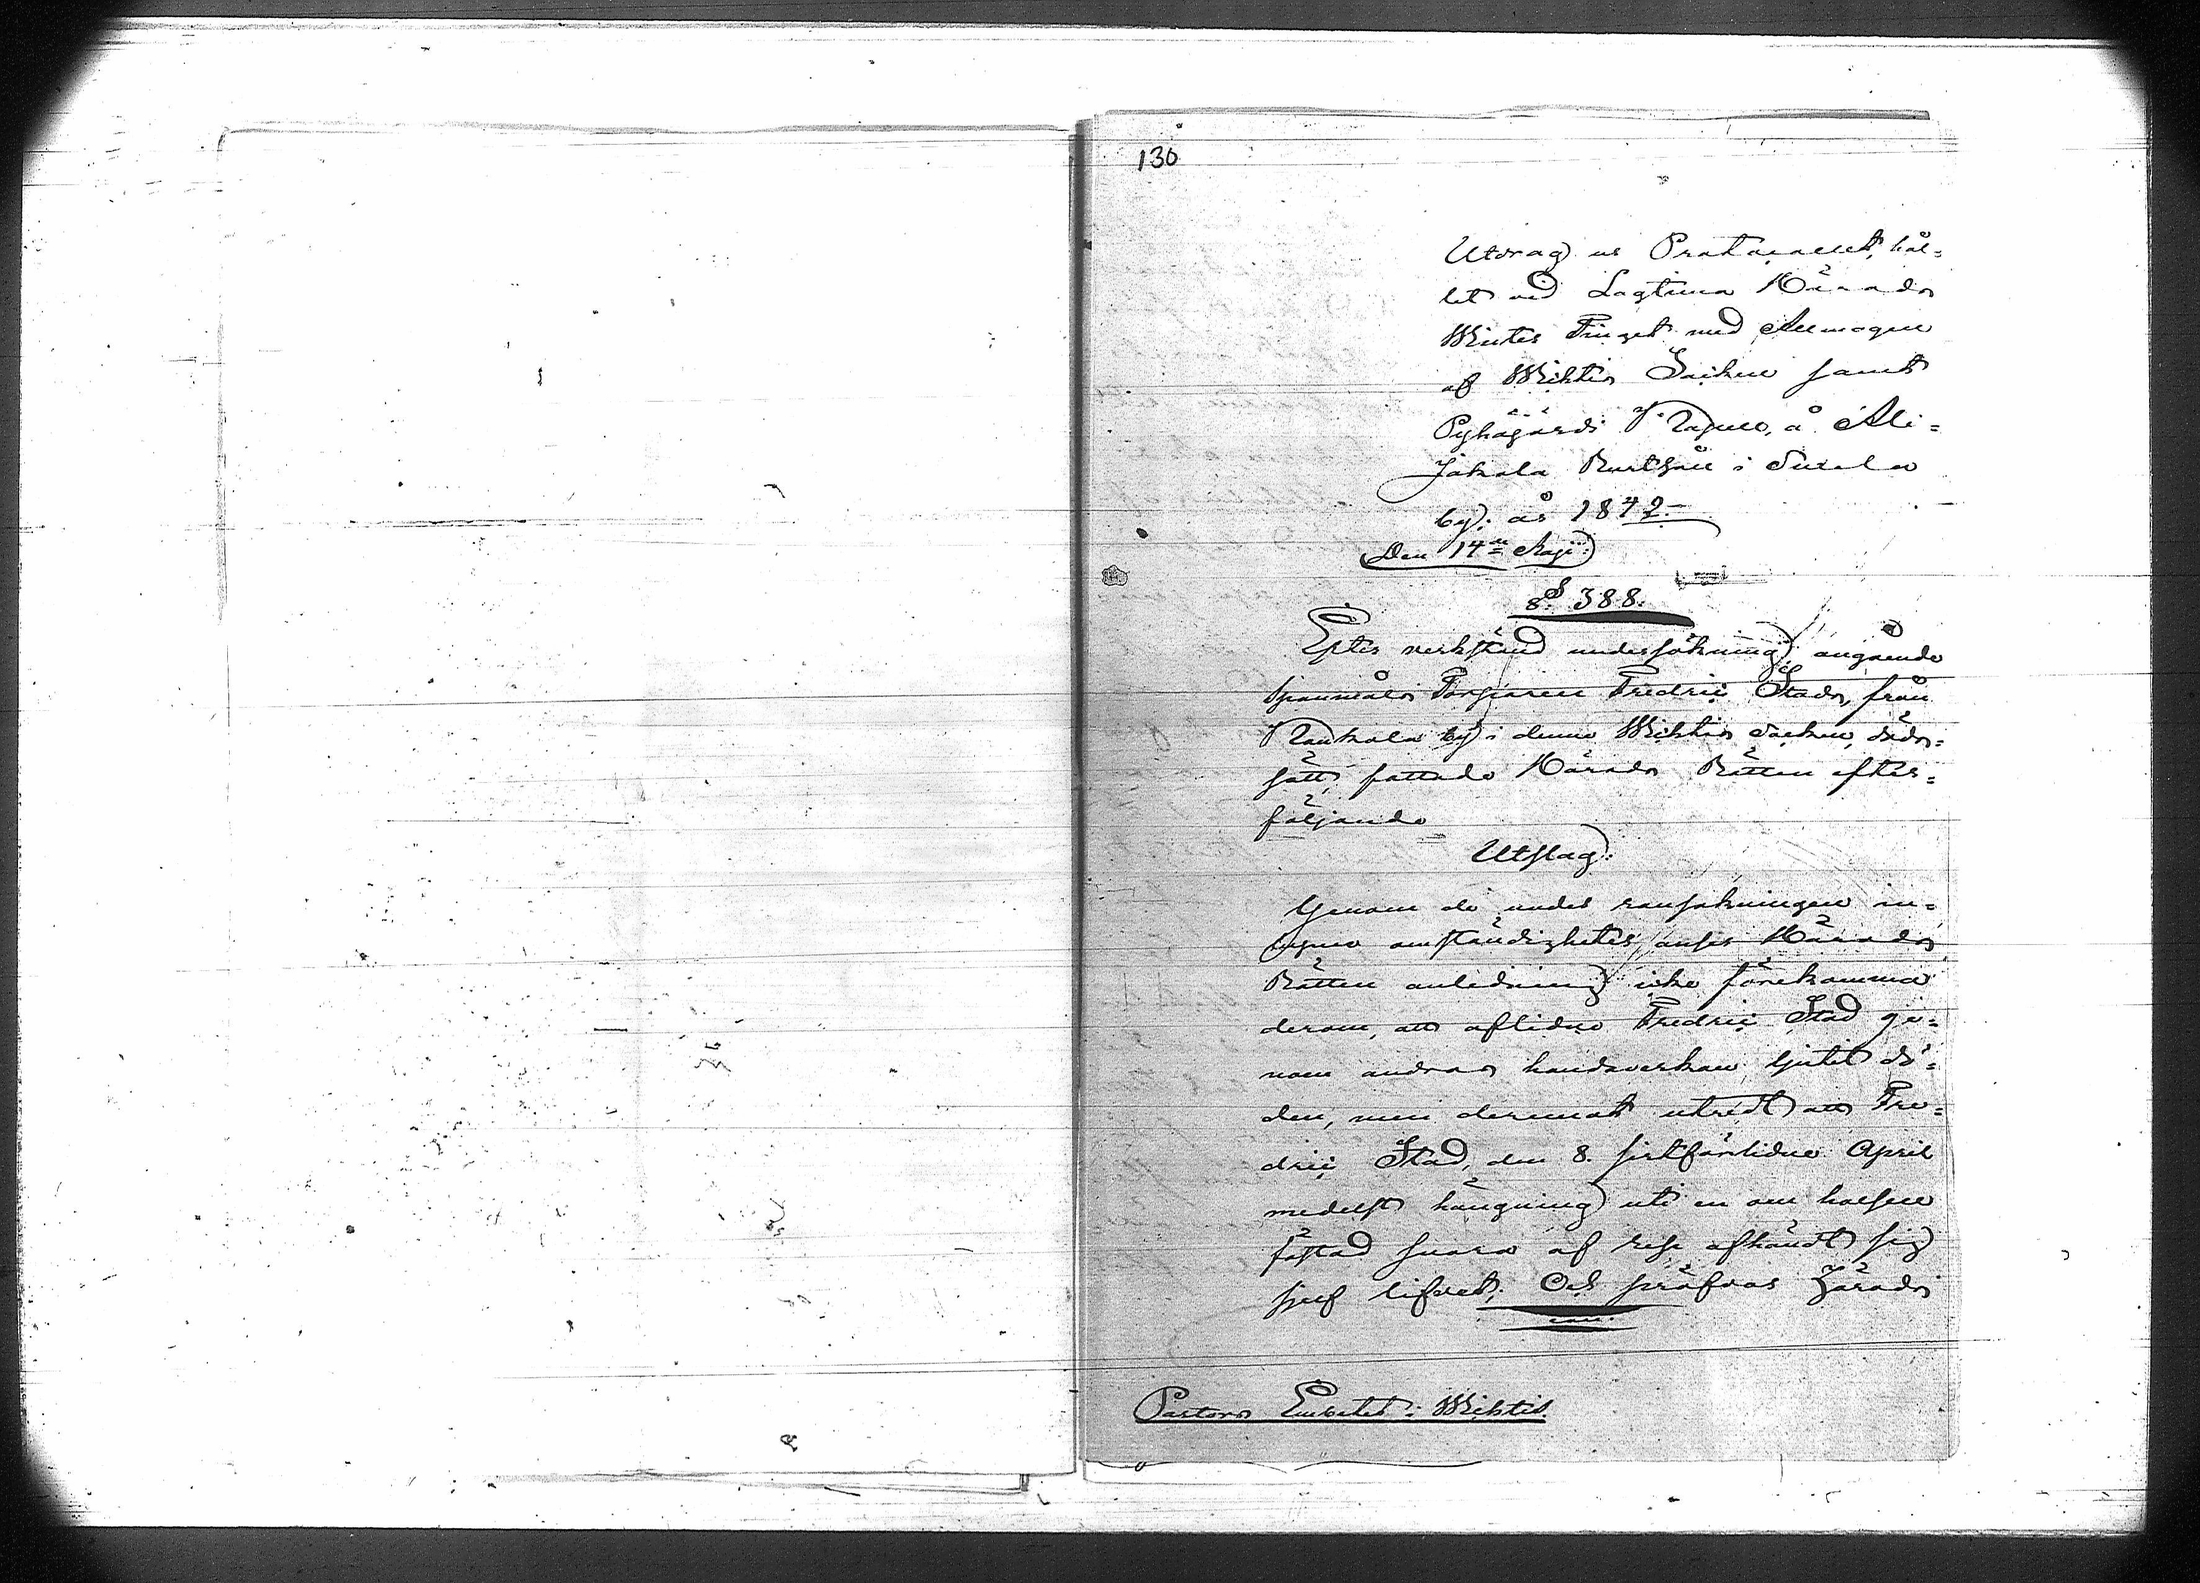 130
Utdrag ur Protocollet, hål-
let vid Lagtima Härads
Winter Tinget med Allmogen
af Wichtis Sochn samt
Pyhäjärvi Capell, å Ali-
Jakala Rusthåll i Suksela
by, år 1842.
Den 14de Maji
§ 388.
Efter verkställd undersökning angående
spannmåls Torparen Fredric Stads, från
by i denna Wichtis Sochn, döds-
sätt, fattade Härads Rätten efter-
följande
Utslag:
Genom de under ransakningen in-
lupne omständigheter, anser Härads
Rätten anledning icke förekomma
derom, att aflidne Fredric Stad ge-
nom andras handaverkan ljutit dö-
den, men deremot utredt att Fre-
dric Stad, den 8. sistförlidne April
medelst hängning uti en om halsen
fästad snara af rep afhändt sig
sjelf lifvet; Och pröfvas Härads
Pastors Embetet i Wichtis.